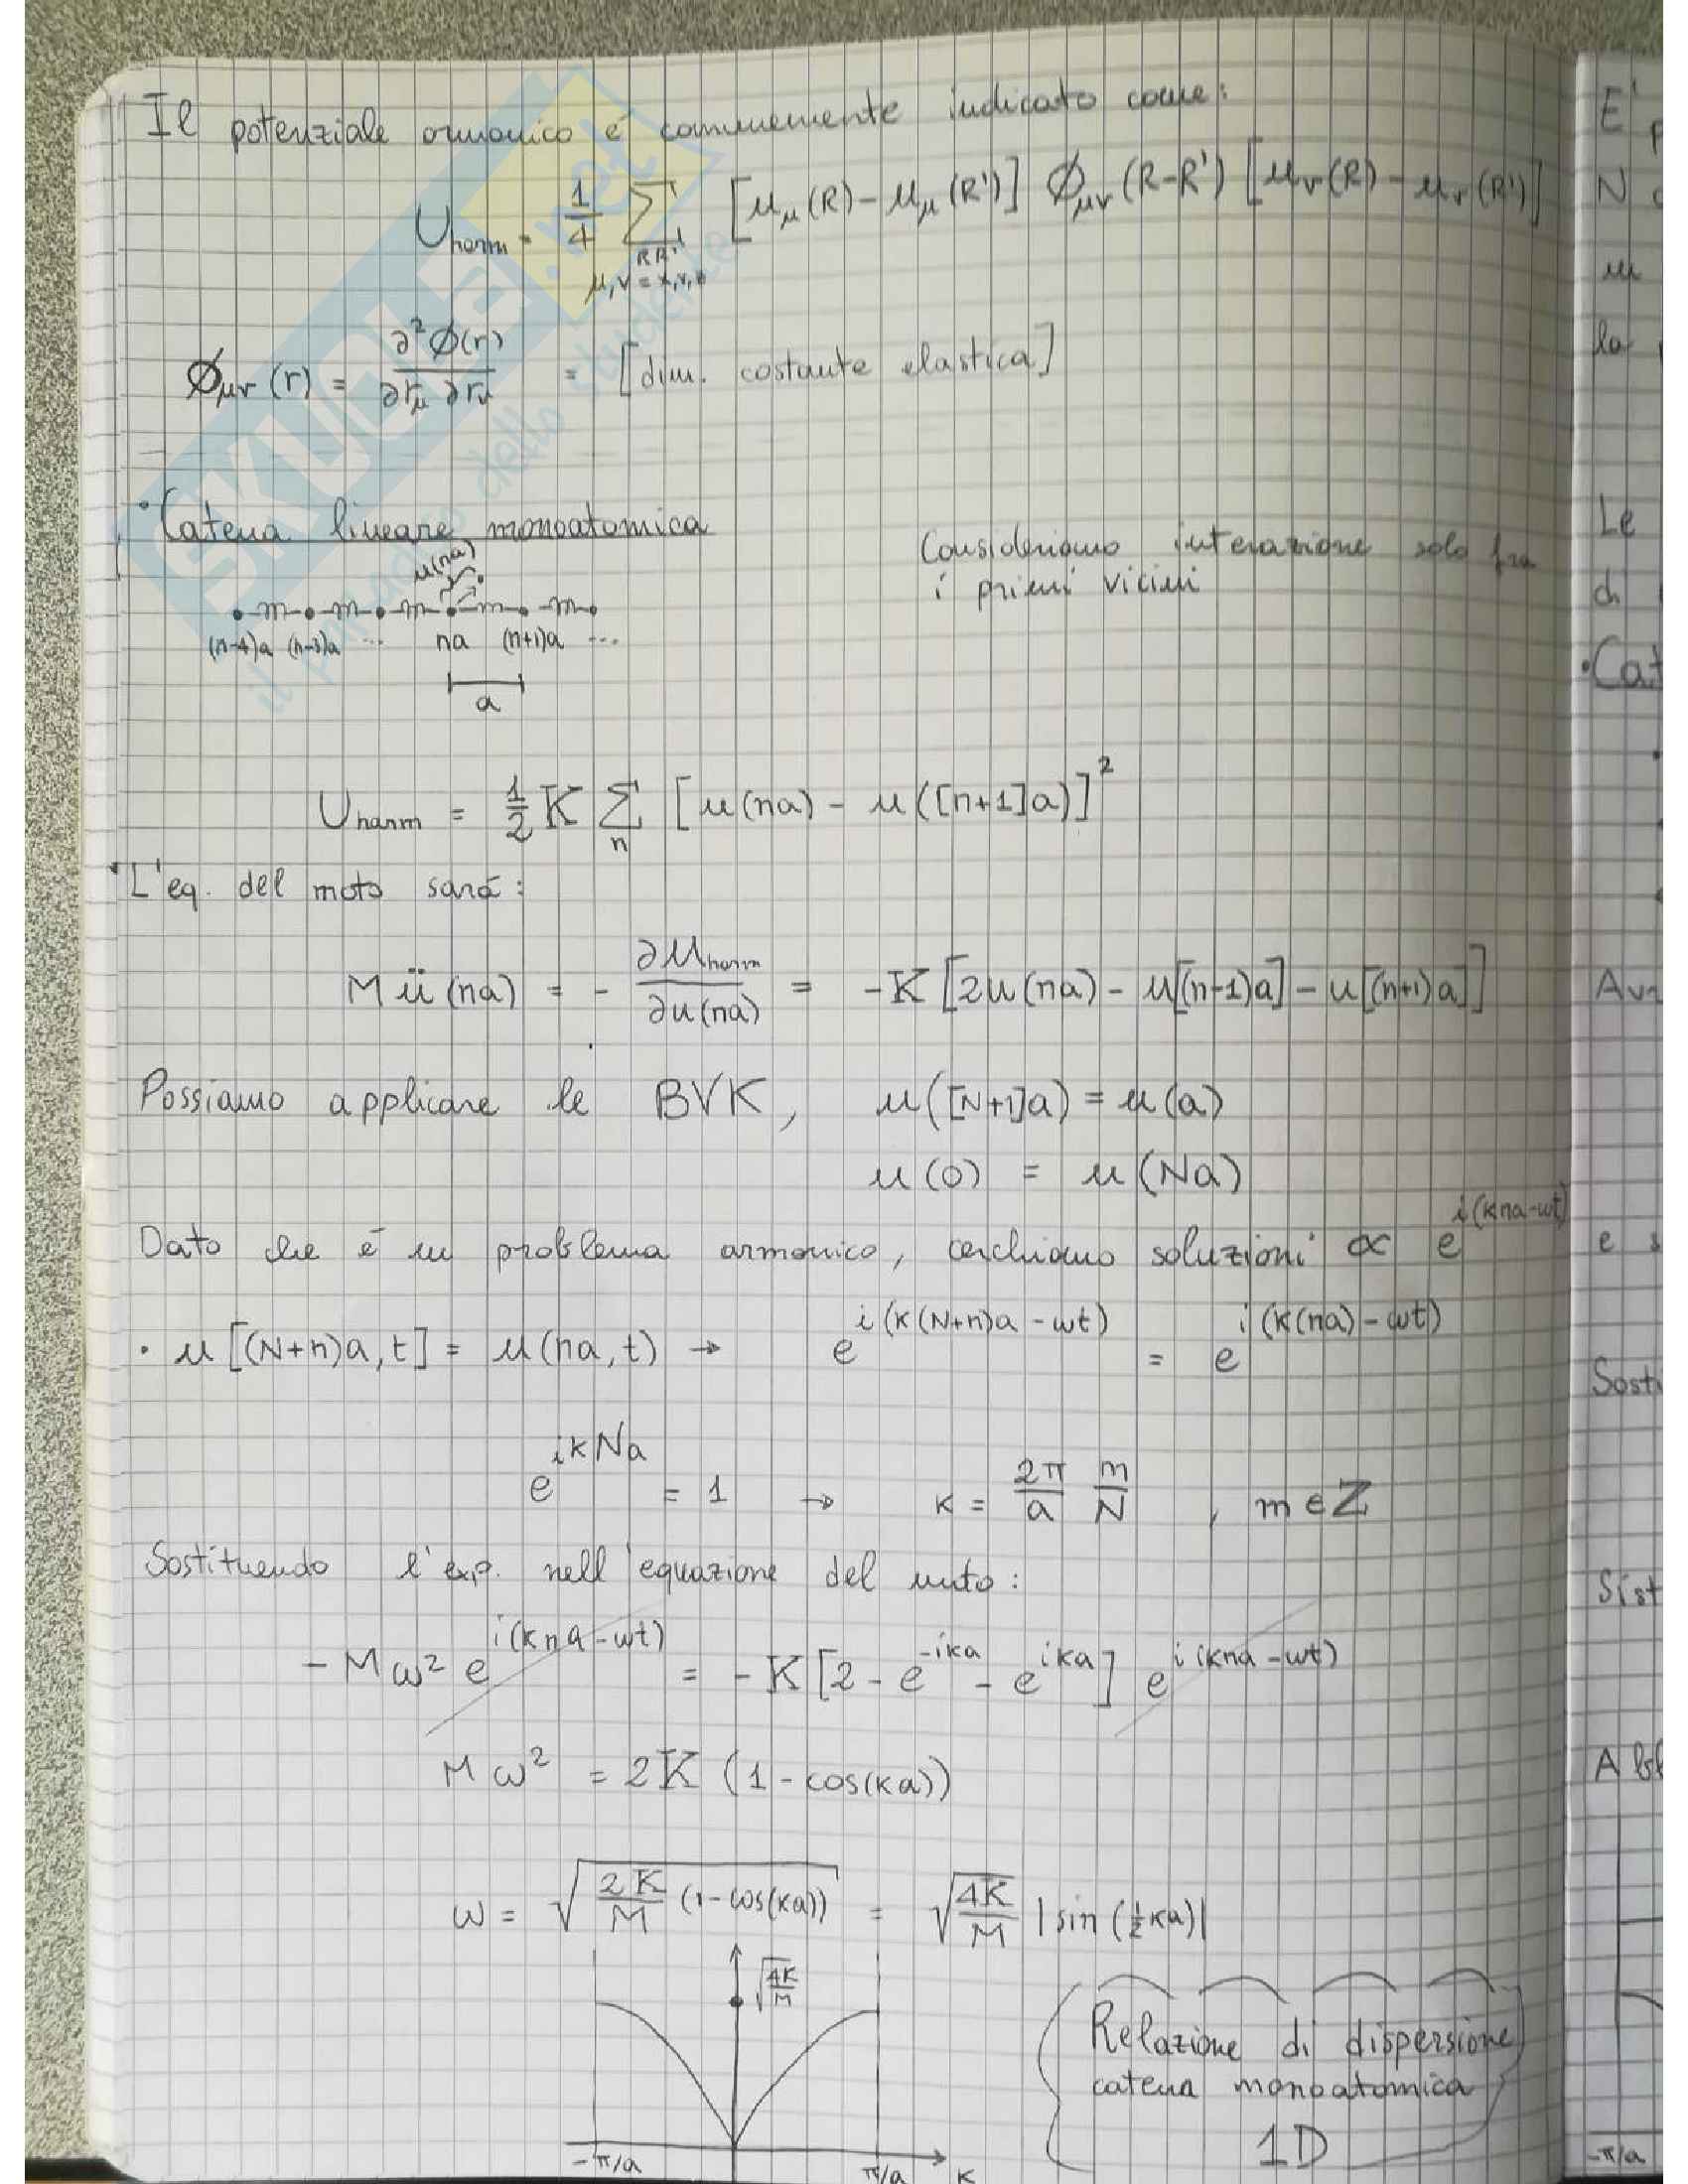 Il potenziale armonico é comunemente indicato come:
U_harm = 1/4 Σ_{RR', μ,ν=x,y,z} [u_μ(R) - u_μ(R')] Φ_μν(R-R') [u_ν(R) - u_ν(R')]
Φ_μν(r) = ∂²Φ(r)/∂r_μ ∂r_ν = [dim. costante elastica]
• Catena lineare monoatomica
Consideriamo interazione solo fra
i primi vicini
u(na)
(n-4)a (n-3)a ... na (n+1)a ...
a
U_harm = 1/2 K Σ_n [u(na) - u([n+1]a)]²
• L'eq. del moto sará:
M ü(na) = - ∂U_harm/∂u(na) = -K [2u(na) - u[(n-1)a] - u[(n+1)a]]
Possiamo applicare le BVK, u([N+1]a) = u(a)
u(0) = u(Na)
Dato che é un problema armonico, cerchiamo soluzioni ∝ e^{i(kna-ωt)}
• u[(N+n)a,t] = u(na,t) → e^{i(k(N+n)a-ωt)} = e^{i(k(na)-ωt)}
e^{ikNa} = 1 → k = 2π/a m/N , m ∈ Z
Sostituendo l'exp. nell'equazione del moto:
-Mω² e^{i(kna-ωt)} = -K [2 - e^{-ika} - e^{ika}] e^{i(kna-ωt)}
Mω² = 2K (1 - cos(ka))
ω = √(2K/M (1-cos(ka))) = √(4K/M) |sin(½ka)|
√(4K/M)
Relazione di dispersione
catena monoatomica
1D
-π/a π/a k
SKUOLA.net
il paradiso dello studente
E'
N
la
Le
di
• Cat
Avr
e s
Sosti
Sist
Abb
-π/a